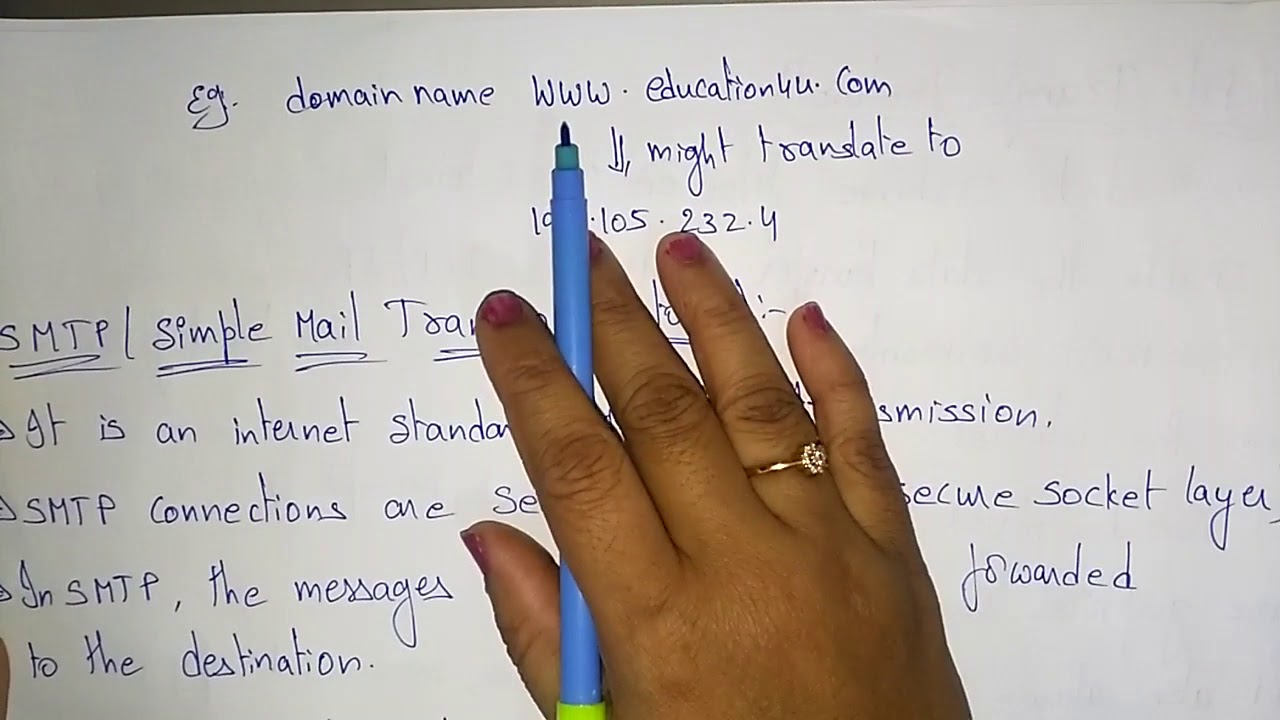 Eg. domain name www.education4u.com
⇓ might translate to
.105.232.4
SMTP / Simple Mail
It is an internet
SMTP connections are secure socket layer,
In SMTP, the messages forwarded
to the destination.